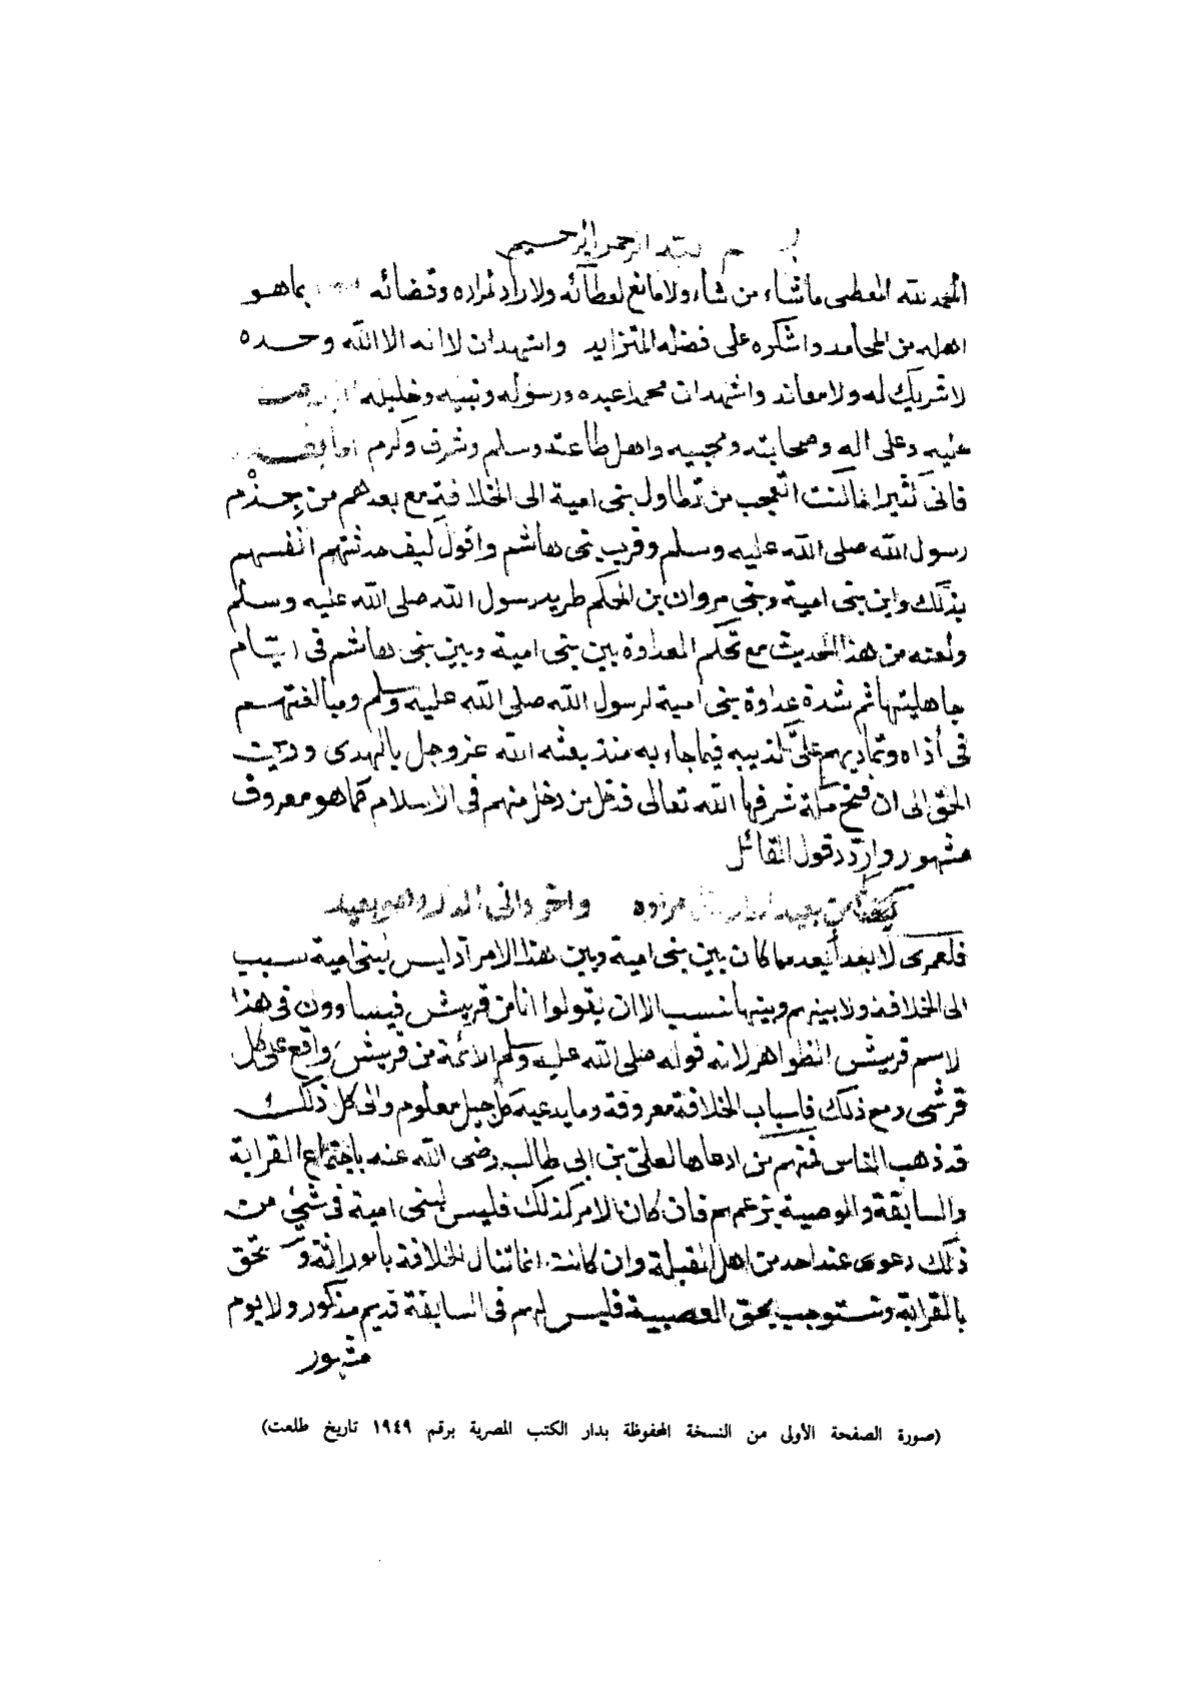 بسم الله الرحمن الرحيم
الحمد لله المعطى ماشاء من شاء ولا مانع لعطآئه ولا راد لمراده وقضائه بماهو
اهله من المحامد واشكره على فضله المتزايد واشهد ان لا اله الا الله وحده
لا شريك له ولا معاند واشهد ان محمدا عبده ورسوله ونبيه وخليله
عليه وعلى اله وصحابته ومحبيه واهل طاعته وسلم وشرف وكرم اما بعد
فانى كثيرا ماكنت اتعجب من تطاول بنى امية الى الخلافة مع بعدهم من جِذْم
رسول الله صلى الله عليه وسلم وقرب بنى هاشم واقول كيف حدثتهم انفسهم
بذلك واين بنى امية وبنى مروان بن الحكم طريد رسول الله صلى الله عليه وسلم
ولعنه من هذا الحديث مع تحكم العداوة بين بنى امية وبين بنى هاشم فى ايام
جاهليتها ثم شدة عداوة بنى امية لرسول الله صلى الله عليه وسلم ومبالغتهم
فى أذاه وتماديهم على تكذيبه فيما جاء به منذ بعثه الله عز وجل بالهدى ودين
الحق الى ان فتح مكة شرفها الله تعالى فدخل من دخل منهم فى الاسلام كما هو معروف
مشهور واردد قول القائل
كم من بعيد الدار نال مراده واخر دانى الدار وهو بعيد
فلعمرى لا بعد أبعد مما كان بين بنى امية وبين هذا الامر اذ ليس لبنى امية سبب
الى الخلافة ولا بينهم وبينها نسب الا ان يقولوا انا من قريش فيساوون فى هذا
لاسم قريش الظواهر لانه قوله صلى الله عليه وسلم الأئمة من قريش واقع على كل
قرشى ومع ذلك فاسباب الخلافة معروفة وما يدعيه كل جيل معلوم والى كل ذلك
قد ذهب الناس فمنهم من ادعاها لعلى بن ابى طالب رضى الله عنه باجتماع القرابة
والسابقة والوصية بزعمهم فان كان الامر كذلك فليس لبنى امية فى شئ من
ذلك دعوى عند احد من اهل القبلة وان كانت انما تنال الخلافة بالوراثة وتستحق
بالقرابة وتستوجب بحق العصبية فليس لهم فى السابقة قديم مذكور ولا يوم
مشهور
(صورة الصفحة الأولى من النسخة المحفوظة بدار الكتب المصرية برقم ١٩٤٩ تاريخ طلعت)